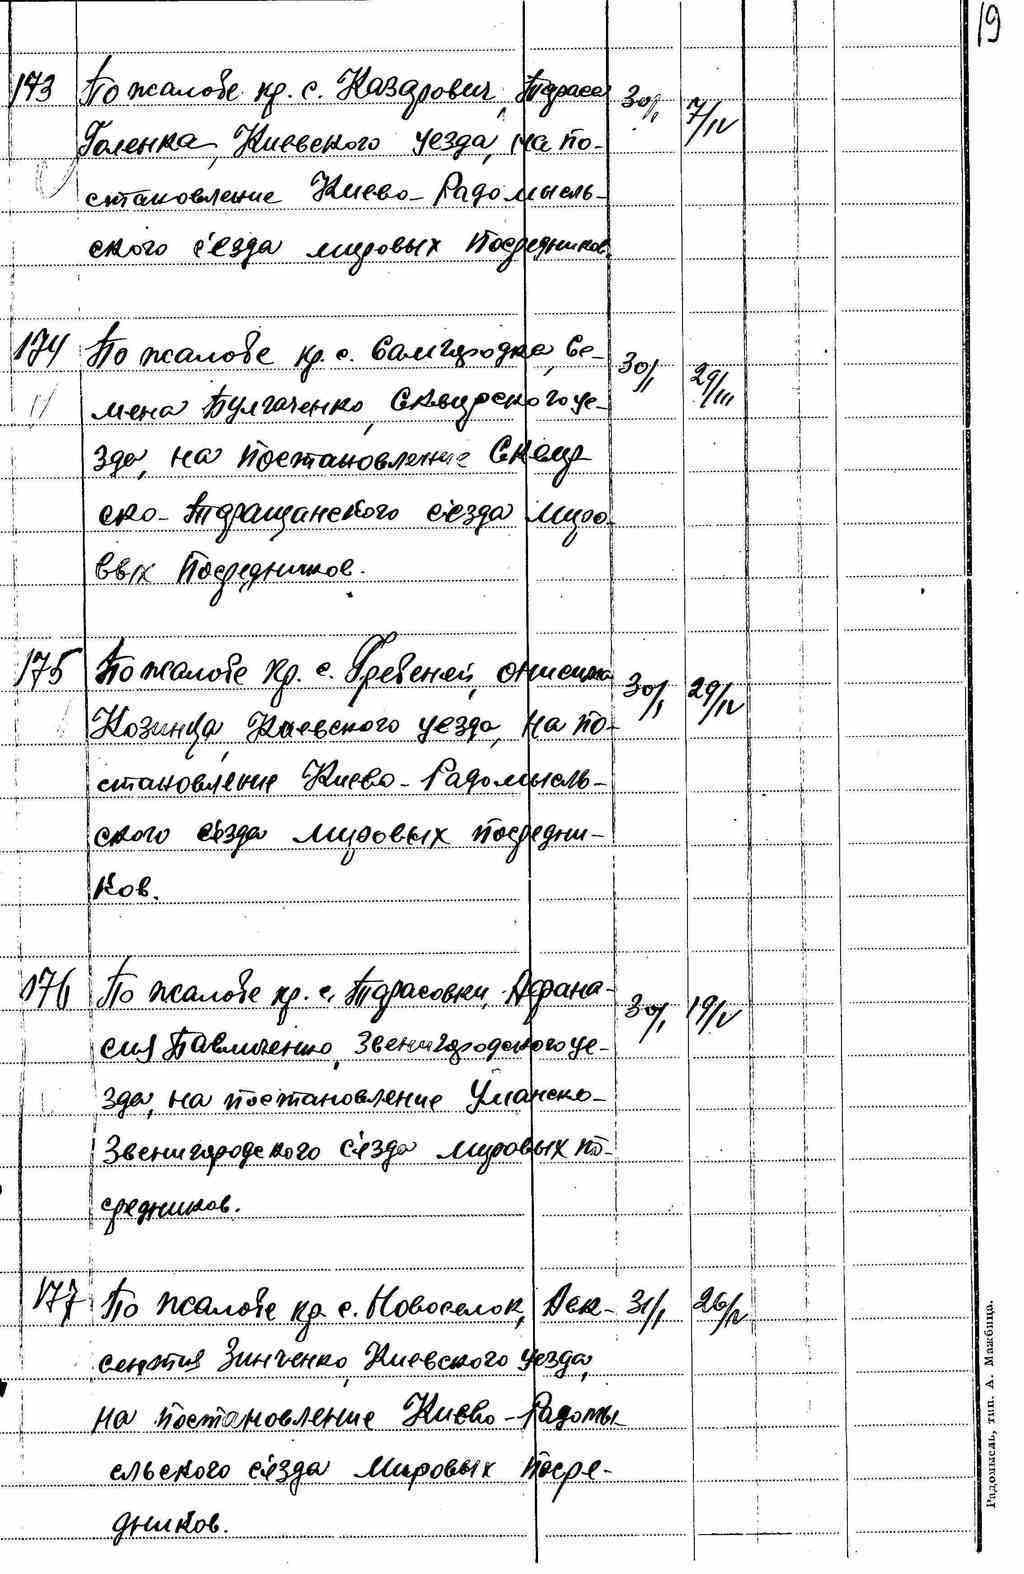 19
173 По жалобе кр. с. Каздрович, Тараса 30/I 7/IV
Голенка, Киевского уезда, на по-
становление Киево-Радомысль-
ского с'езда мировых посредников.
174 По жалобе кр. с. Самгородка, Се- 30/I 29/III
мена Булгаченко, Сквирского уе-
зда, на постановление Сквир
ско-Таращанского с'езда миро-
вых посредников.
175 По жалобе кр. с. Гребеней, Онисима 30/I 29/IV
Козинца, Киевского уезда, на по-
становление Киево-Радомысль-
ского с'езда мировых посредни-
ков.
176 По жалобе кр. с. Тарасовки, Афана- 30/I 19/V
сия Павличенко, Звенигородского уе-
зда, на постановление Уманско-
Звенигородского с'езда мировых по-
средников.
177 По жалобе кр. с. Новоселок, Аек- 31/I 26/IV
сентия Зинченко, Киевского уезда,
на постановление Киево-Радомы-
сльского с'езда мировых посре-
дников.
Радомысль, тип. А. Мажбица.